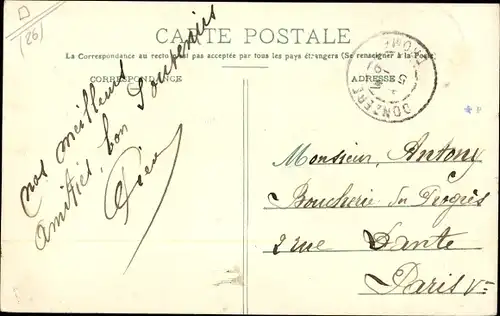 D
(26)
CARTE POSTALE
La Correspondance au recto n'est pas acceptée par tous les pays étrangers (Se renseigner à la Poste)
CORRESPONDANCE
ADRESSE
DONZERE
DROME
nos meilleurs
amitiés, bon Souvenir
Monsieur Antony
Boucherie du Progrès
2 rue Dante
Paris Ve